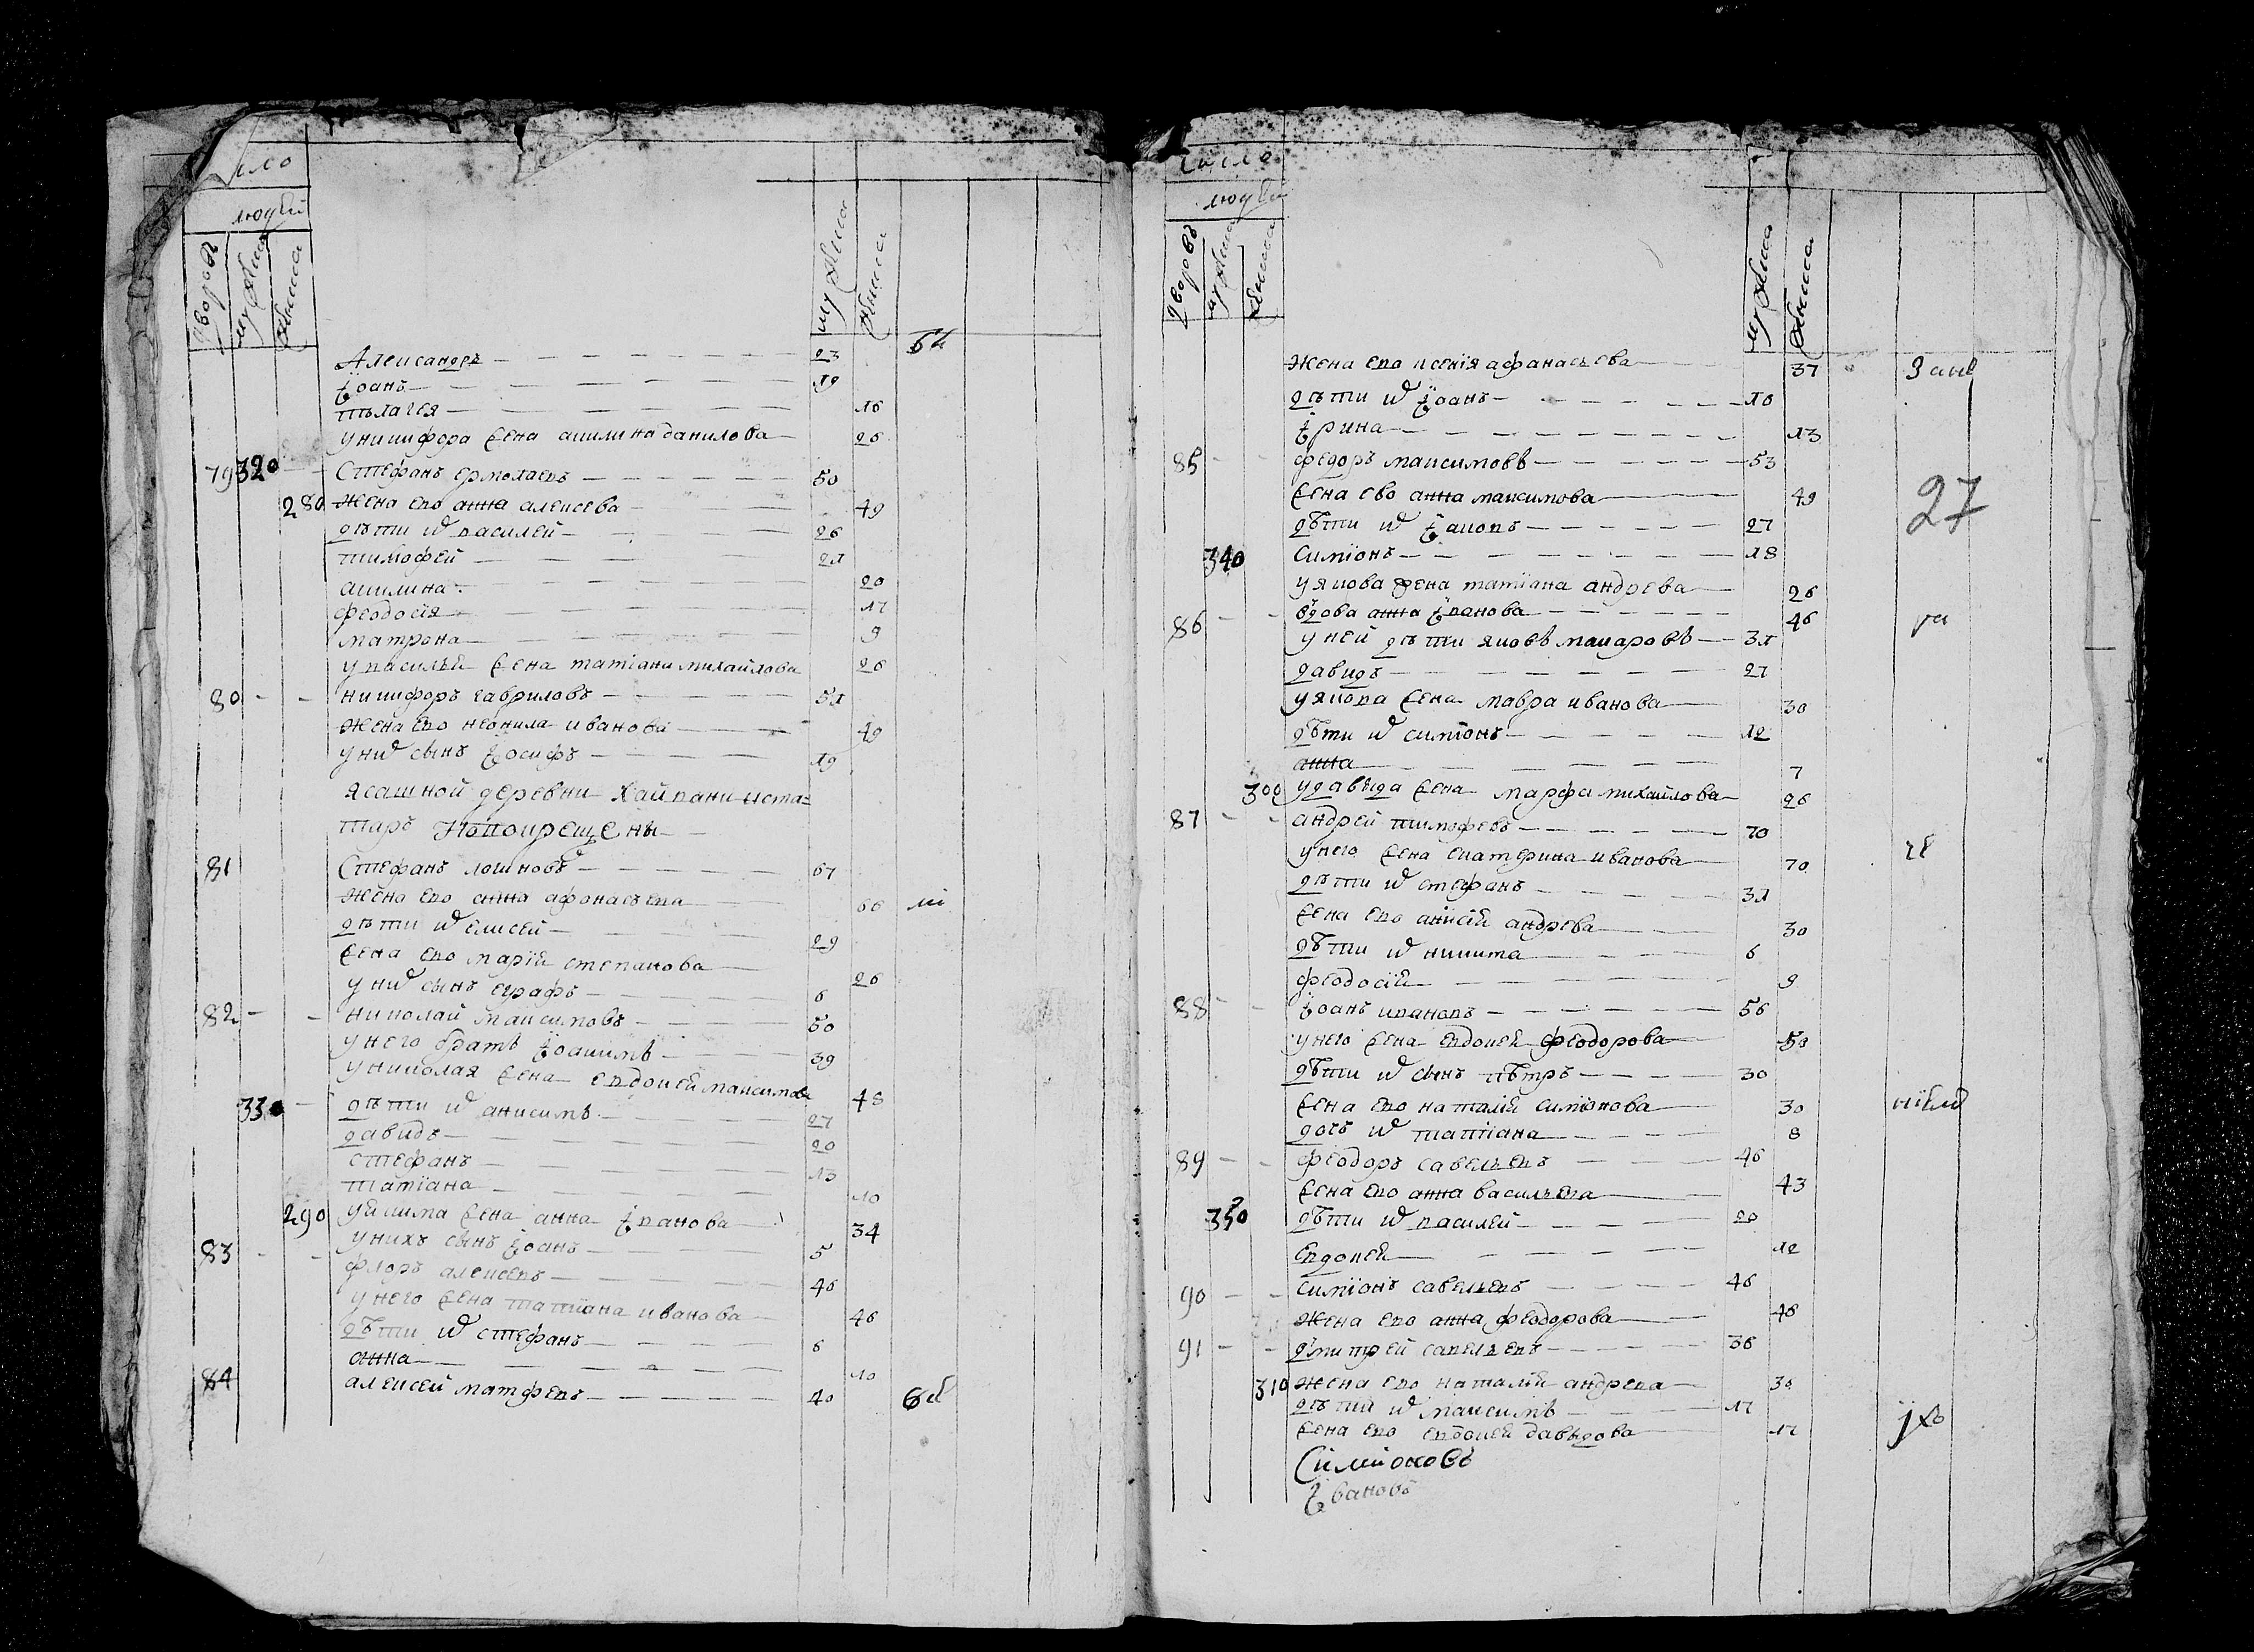 людей
дворовъ
мужска
женска
мужска
женска
Александръ 23
Iоанъ 19
пелагея 16
у никифора жена акилина данилова 26
79 320 Стефанъ ермолаевъ 50
280 Жена ево анна алексева 49
дѣти их василей 26
тимофей 21
акилина 20
феодосїя 17
матрона 9
у василья жена татїана михайлова 26
80 никифоръ гавриловъ 51
Жена ево неонила иванова 49
у них сынъ Iосифъ 19
ясашной деревни
новокрещены
81 Стефанъ 67
Жена ево анна афонасьева 66
дѣти их елисей 29
жена ево марїя степанова 26
у них сынъ 6
82 николай максимовъ 50
у него братъ Iоакимъ 39
у николая жена евдокея максимова 48
330 дѣти их анисимъ 27
давидъ 20
стефанъ 13
татїана 10
290 жена анна Iванова 34
у нихъ сынъ Iоанъ 5
83 флоръ алексевъ 46
у него жена татїана иванова 46
дѣти их стефанъ 6
анна 10
84 алексей матфевъ 40
число
людей
дворовъ
мужска
женска
мужска
женска
жена ево ксенїя афанасьева 37
дѣти их Iоанъ 10
Iрина 13
85 федоръ максимовъ 53
жена ево анна максимова 49
27
дѣти их Iаковъ 27
340 Симїонъ 18
у якова жена татїана андрева 26
86 вдова анна Iванова 46
у ней дѣти яковъ макаровъ 31
давидъ 27
у якова жена мавра иванова 30
дѣти их симїонъ 12
анна 7
300 у давыда жена марфа михайлова 26
87 андрей тимофевъ 70
у него жена екатерина иванова 70
дѣти их стефанъ 31
жена ево анисїя андрева 30
дѣти их никита 6
феодосїя 9
88 Iоанъ ивановъ 56
у него жена евдокея феодорова 50
дѣти их сынъ пѣтръ 30
жена ево наталїя симїонова 30
дочь их татїана 8
89 феодоръ савельевъ 46
жена ево анна васильева 43
350 дѣти их василей 20
Евдокея 12
90 симїонъ савельевъ 46
Жена ево анна феодорова 46
91 дмитрей савельевъ 36
310 Жена ево наталїя андрева 36
дѣти их максимъ 17
жена ево евдокея давыдова 17
Симионовъ
Iвановъ